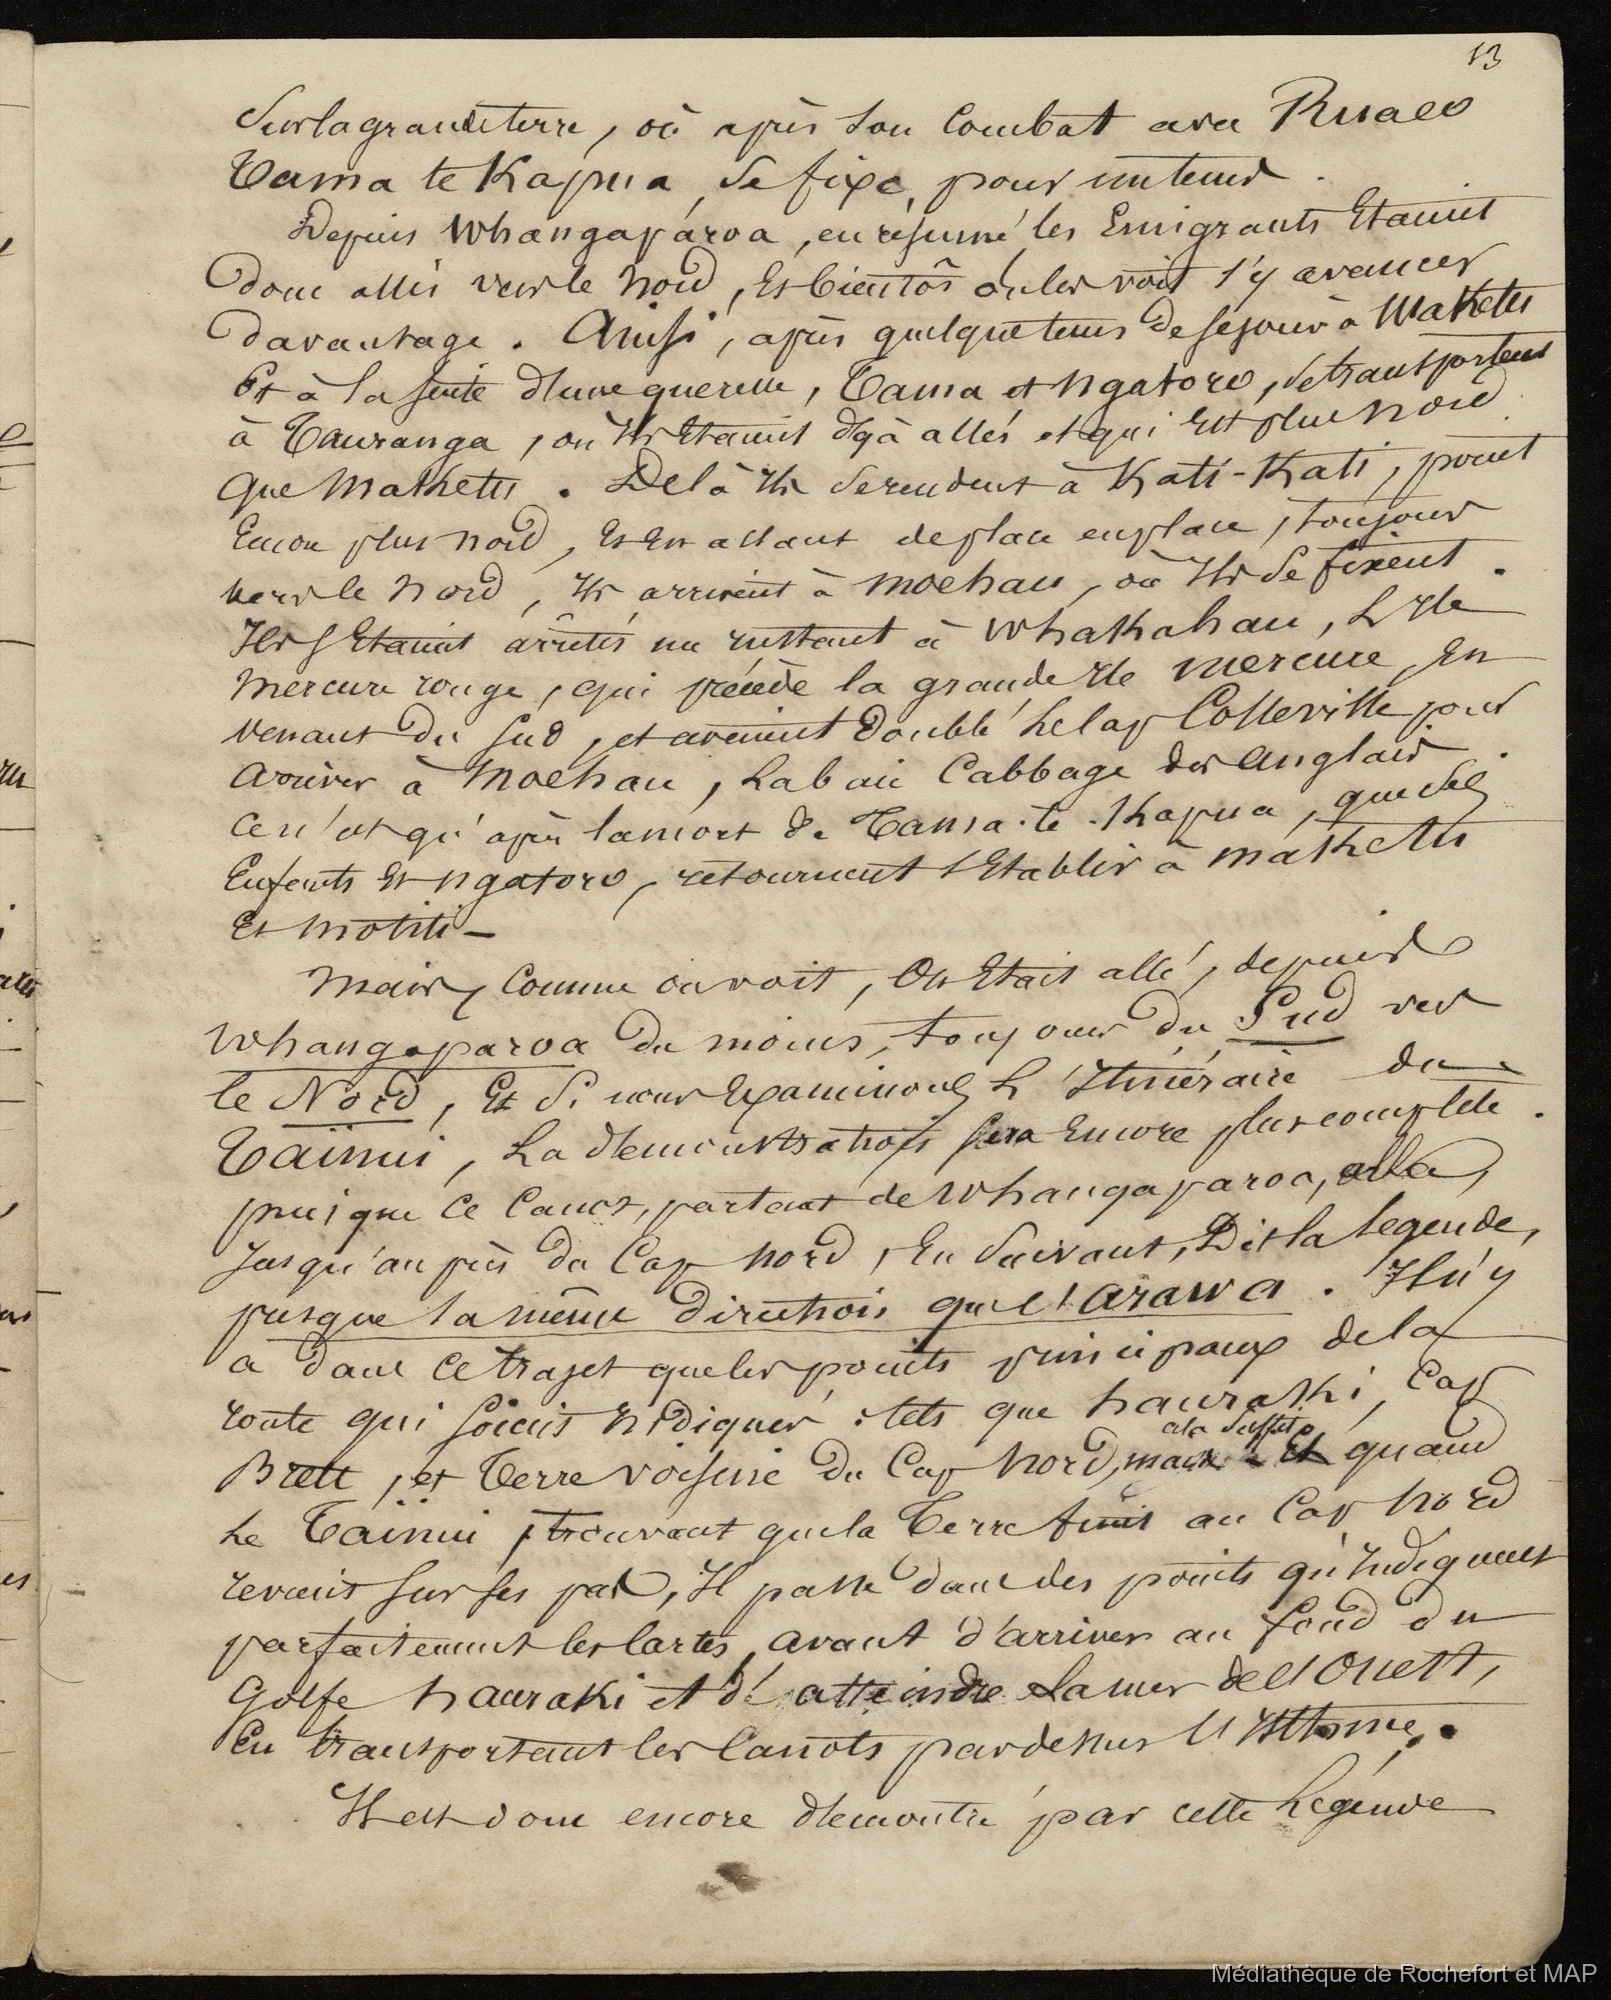 13
Sur la grande terre, où après son Combat avec Ruaeo
Tama te Kapua, se fixe, pour un tems.
Depuis Whangapároa, en résumé, les Emigrants Etaient
donc allés vers le Nord, Et bientôt on les voit s'y avancer
davantage. Ainsi, après quelque tems de séjour à Maketu
Et à la suite d'une querelle, Tama et Ngatoro, se transportent
à Tauranga, où Ils Etaient déjà allés et qui Est plus Nord
que Maketu. De là Ils se rendent à Kati-Kati, point
Encore plus Nord, Et En allant de place en place, toujours
vers le Nord, Ils arrivent à Moehau, où Ils se fixent.
Ils s'Etaient arrêtés un Instant à Whakahau, L'Ile
Mercure rouge, qui précède la grande Ile Mercure, En
venant du Sud, et avaient doublé Le Cap Colleville pour
arriver à Moehau, La baie Cabbage des Anglais.
Ce n'est qu'après la mort de Tama-te-Kapua, que ses
Enfants Et Ngatoro, retournent s'Etablir à Maketu
Et Motiti -
Mais, Comme on voit, On Etait allé, depuis
Whangaparoa du moins, toujours du Sud vers
le Nord, Et Si nous Examinons L'Itinéraire du
Taïnui, La démonstration sera Encore plus complète.
puisque Ce Canot, partant de Whangaparoa, alla,
Jusqu'auprès du Cap Nord, En Suivant, Dit la légende,
presque la même direction que l'Arawa. Il n'y
a dans Ce trajet que les points principaux de la
route qui soient Indiqués: tels que Hauraki, Cap
Brett, et Terre voisine du Cap Nord, mais
cela suffit.
Et quand
Le Taïnui, trouvant que la Terre finit au Cap Nord
revient sur ses pas, Il passe dans des points qu'Indiquent
parfaitement les Cartes, avant d'arriver au fond du
Golfe Hauraki et d'atteindre La mer de l'Ouest,
En transportant les Canots par dessus l'Isthme.
Il est donc encore démontré par cette Légende
Médiathèque de Rochefort et MAP